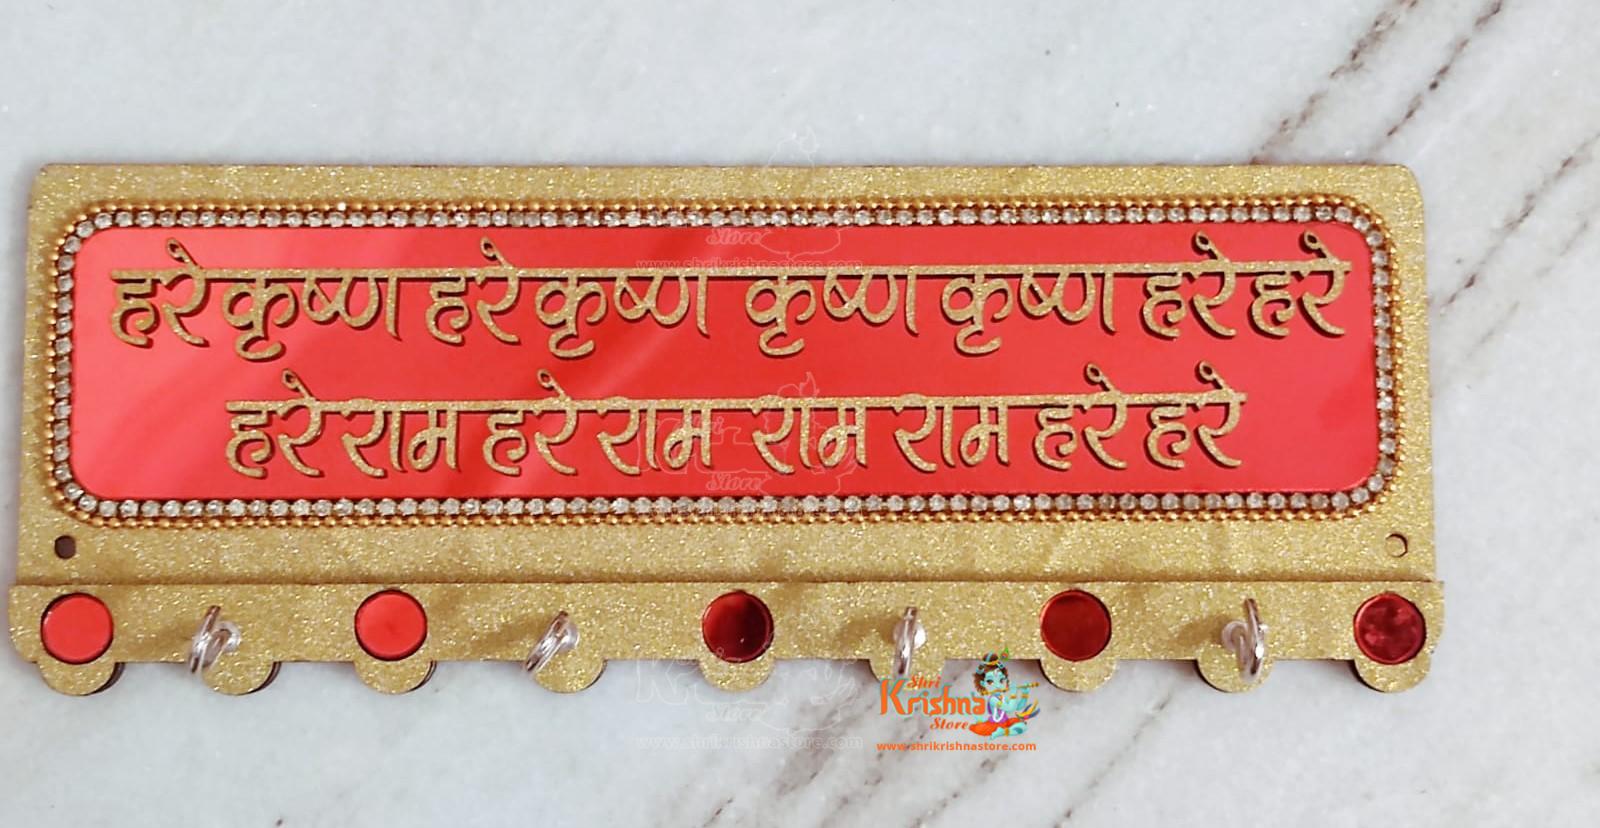 हरे कृष्ण हरे कृष्ण कृष्ण कृष्ण हरे हरे
हरे राम हरे राम राम राम हरे हरे
Shri
Krishna
Store
www.shrikrishnastore.com